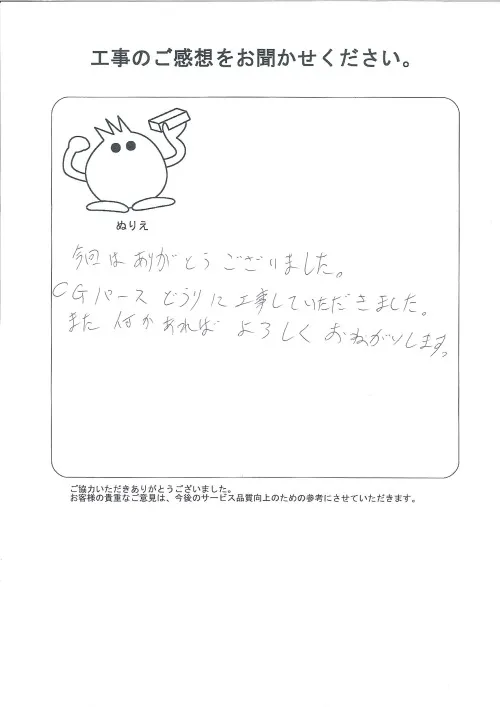 工事のご感想をお聞かせください。
ぬりえ
今回はありがとうございました。
CGパースどうりに工事していただきました。
また何かあれば よろしくおねがいします。
ご協力いただきありがとうございました。
お客様の貴重なご意見は、今後のサービス品質向上のための参考にさせていただきます。